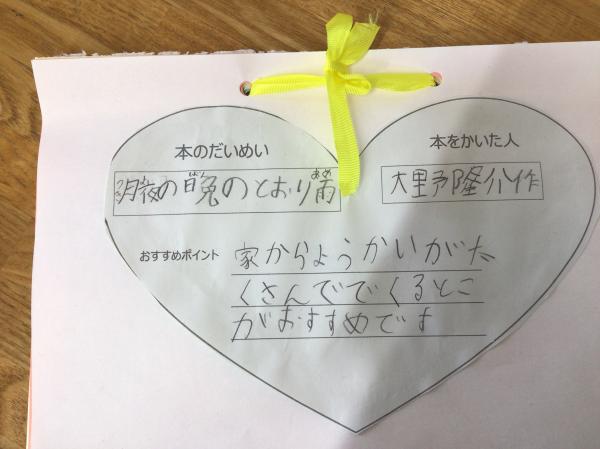 本のだいめい
本をかいた人
月夜の晩のとおり雨
つき
ばん
あめ
大野隆介作
おすすめポイント
家からようかいがた
くさんででくるとこ
がおすすめです